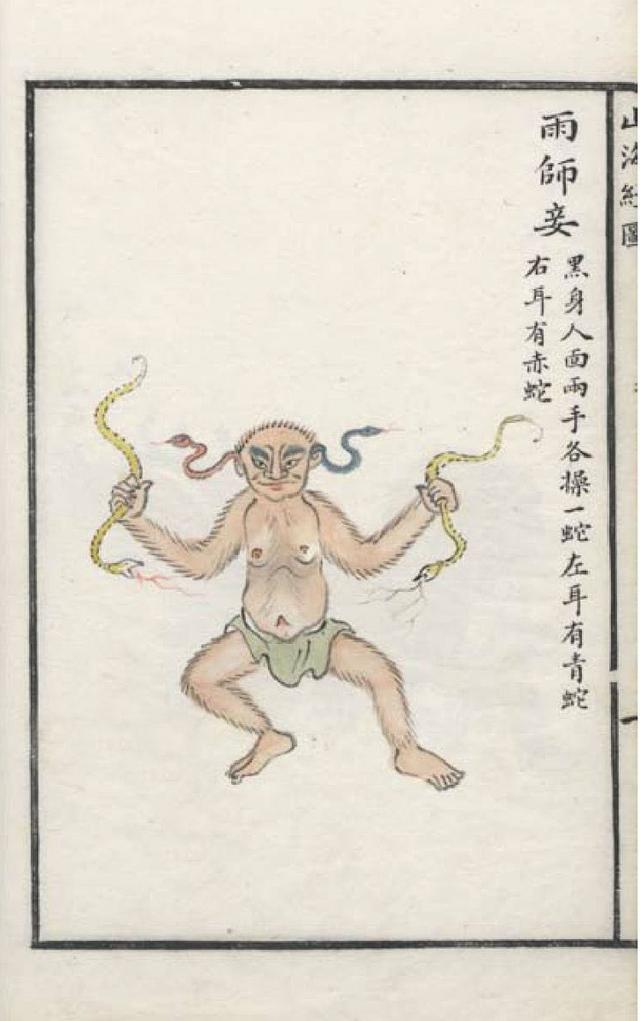 山海經圖
雨師妾
黑身人面兩手各操一蛇左耳有青蛇
右耳有赤蛇